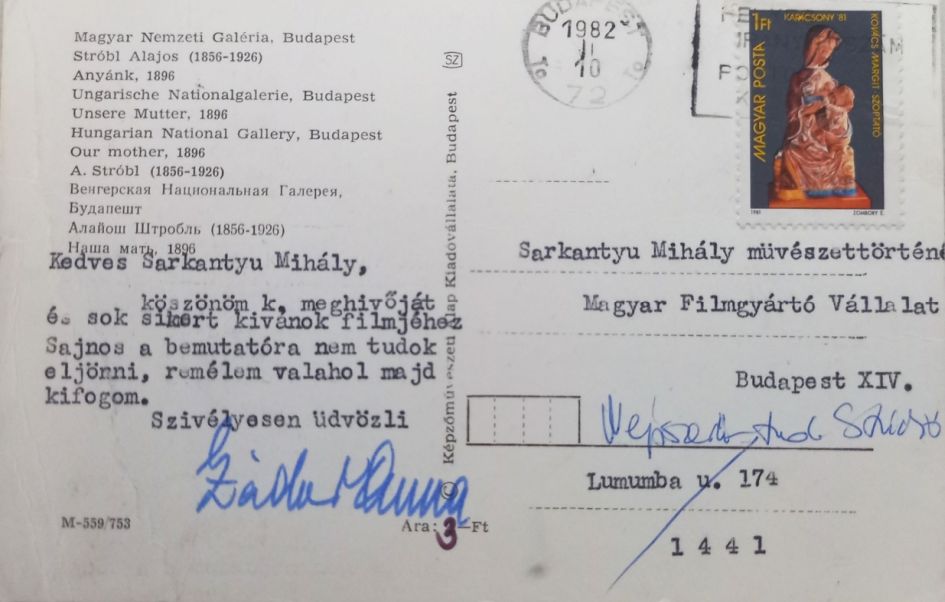 Magyar Nemzeti Galéria, Budapest
Stróbl Alajos (1856-1926)
Anyánk, 1896
Ungarische Nationalgalerie, Budapest
Unsere Mutter, 1896
Hungarian National Gallery, Budapest
Our mother, 1896
A. Stróbl (1856-1926)
Венгерская Национальная Галерея,
Будапешт
Алайош Штробль (1856-1926)
Наша мать, 1896
Kedves Sarkantyu Mihály,
köszönöm k. meghivóját
és sok sikert kivánok filmjéhez
Sajnos a bemutatóra nem tudok
eljönni, remélem valahol majd
kifogom.
Szivélyesen üdvözli
Zádor Anna
M-559/753
Ára: 3 —Ft
SZ
© Képzőművészeti Alap Kiadóvállalata, Budapest
BUDAPEST
1982
II
10
72
1Ft
KARÁCSONY '81
KOVÁCS MARGIT: SZOPTATÓ
MAGYAR POSTA
1981
ZOMBORY É.
Sarkantyu Mihály müvészettörténé
Magyar Filmgyártó Vállalat
Budapest XIV.
Lumumba u. 174
1 4 4 1